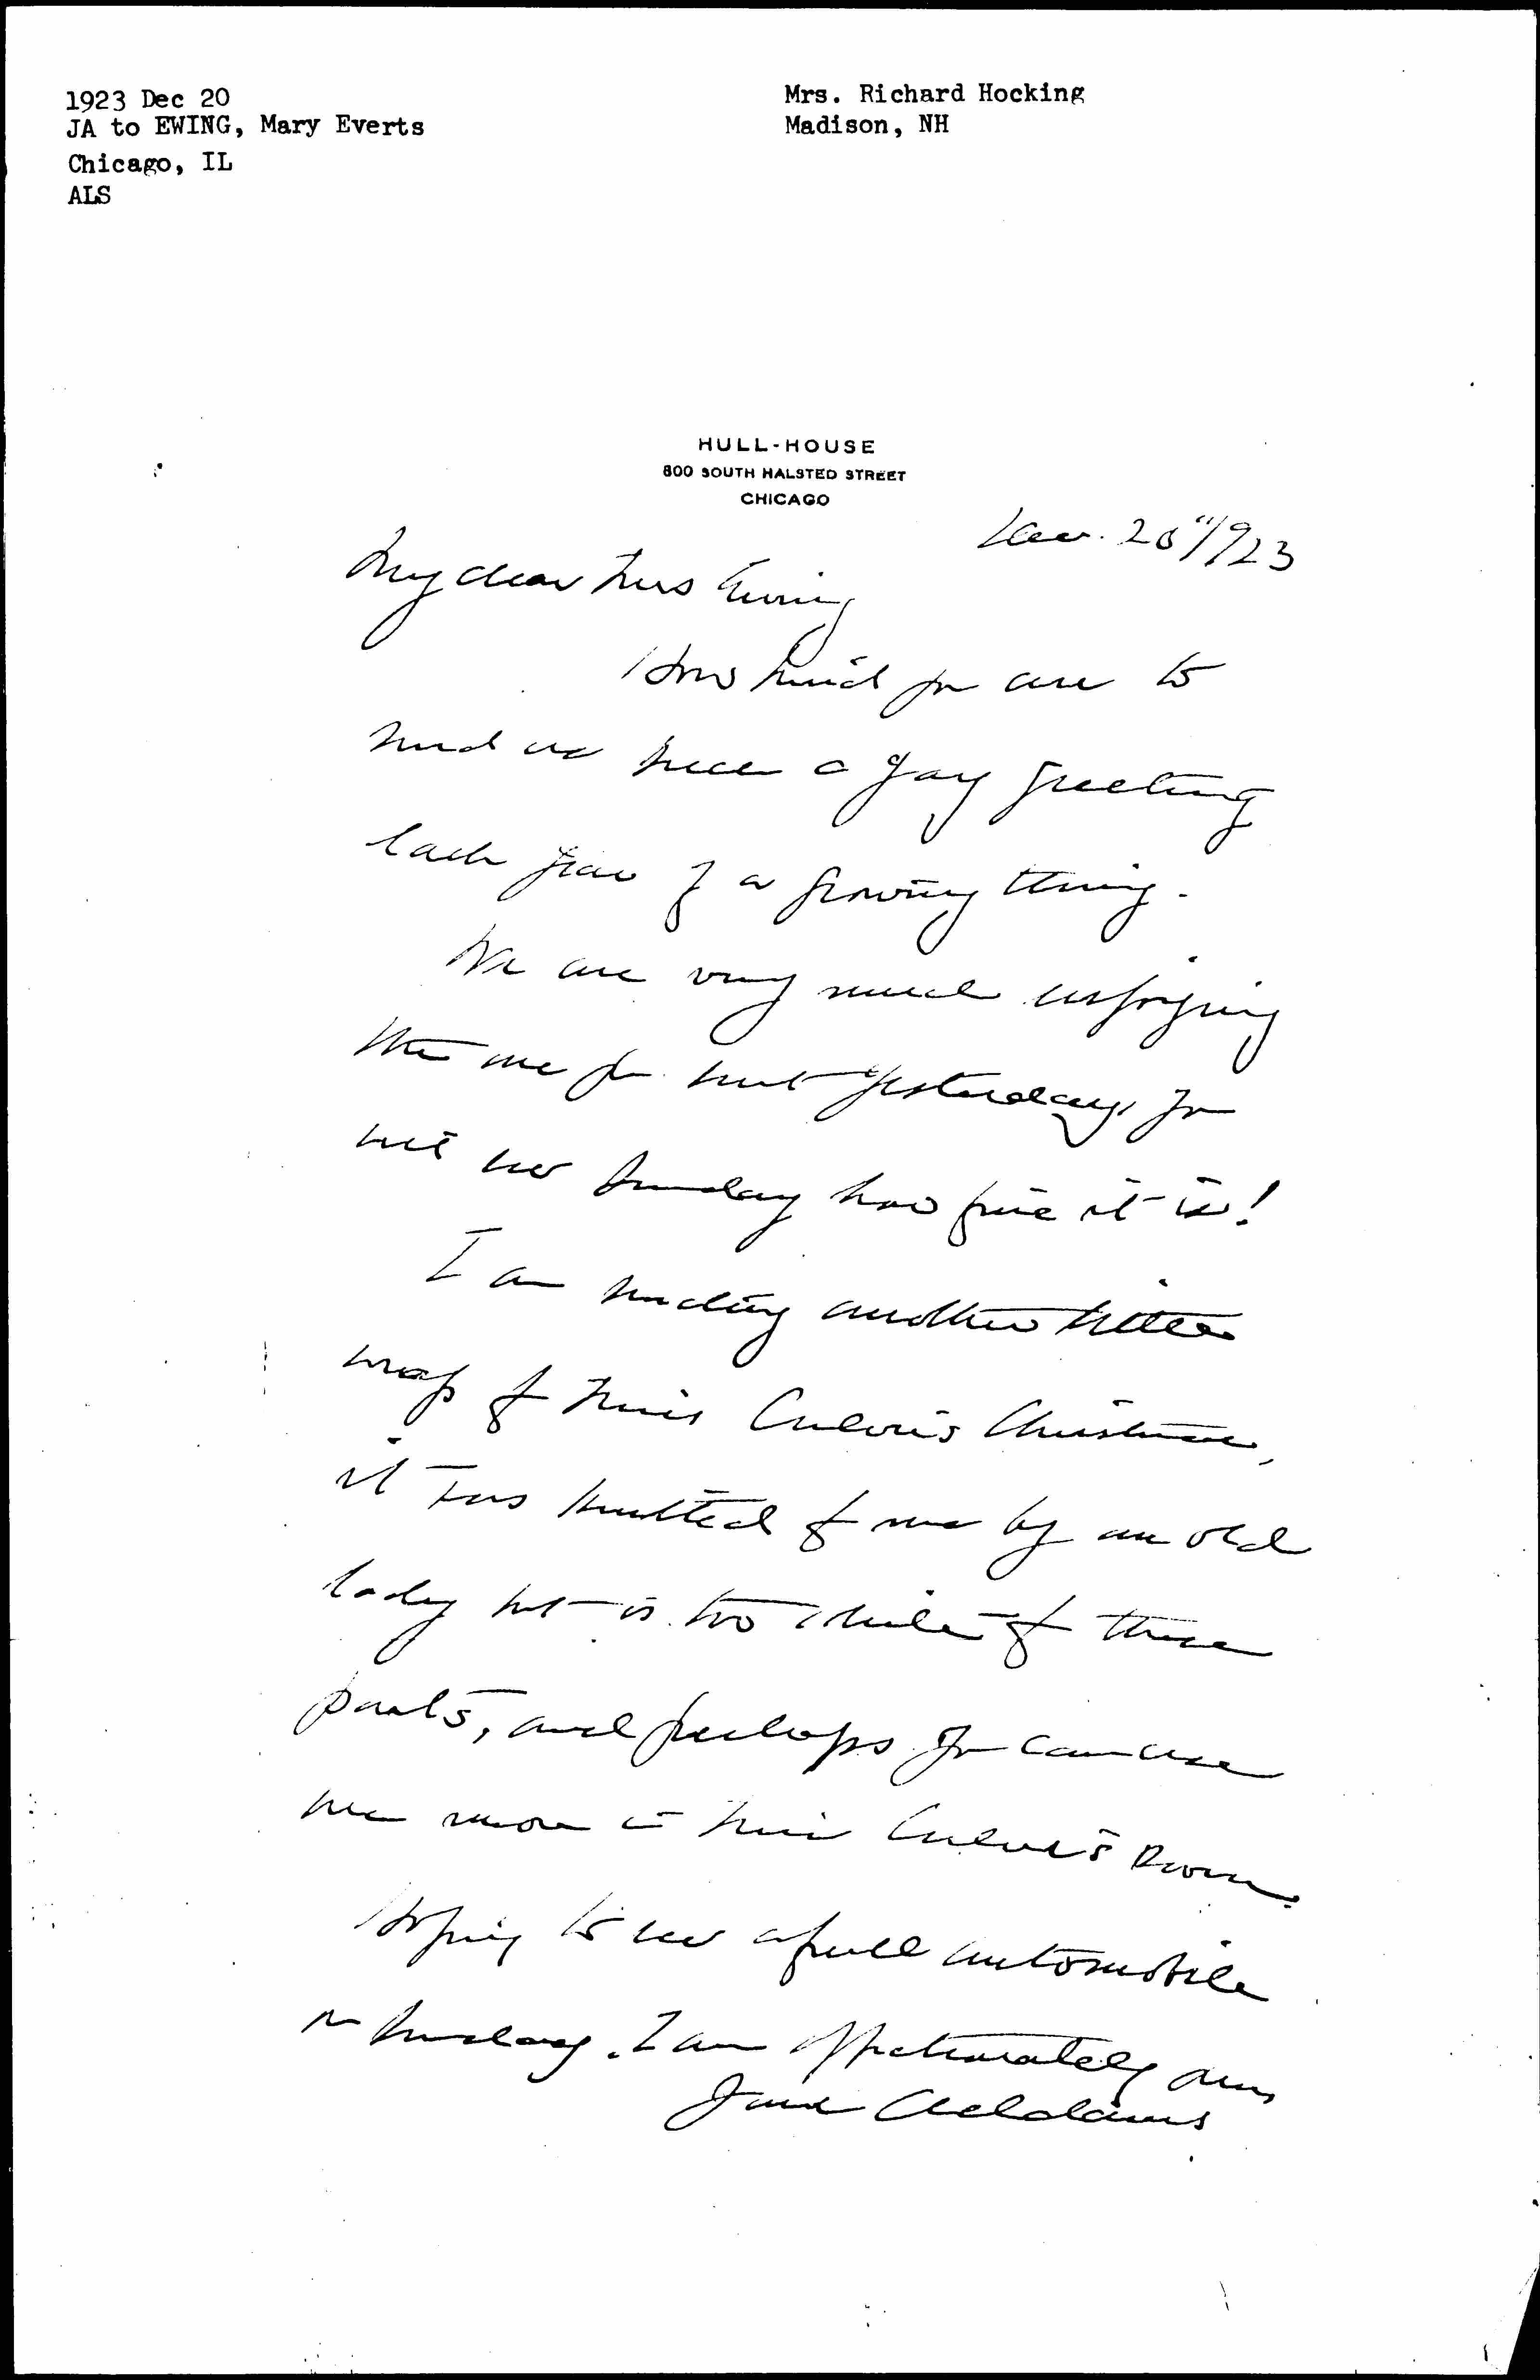 1923 Dec 20
JA to EWING, Mary Everts
Chicago, IL
ALS
Mrs. Richard Hocking
Madison, NH
HULL-HOUSE
800 SOUTH HALSTED STREET
CHICAGO
Dec. 20"/923
My dear Mrs Ewing
How kind you are to
send us here a gay greeting
each year of a growing thing.
We are very much enjoying
the one you sent yesterday, you
will see Sunday how fine it is!
I am sending another little
wrap for Miss Culver's Christmas,
it was knitted for me by an old
lady but is too white for these
parts, and perhaps you can use
one more in Miss Culver's Room.
Hoping to see a full automobile
on Sunday. I am affectionately yours
Jane Addams